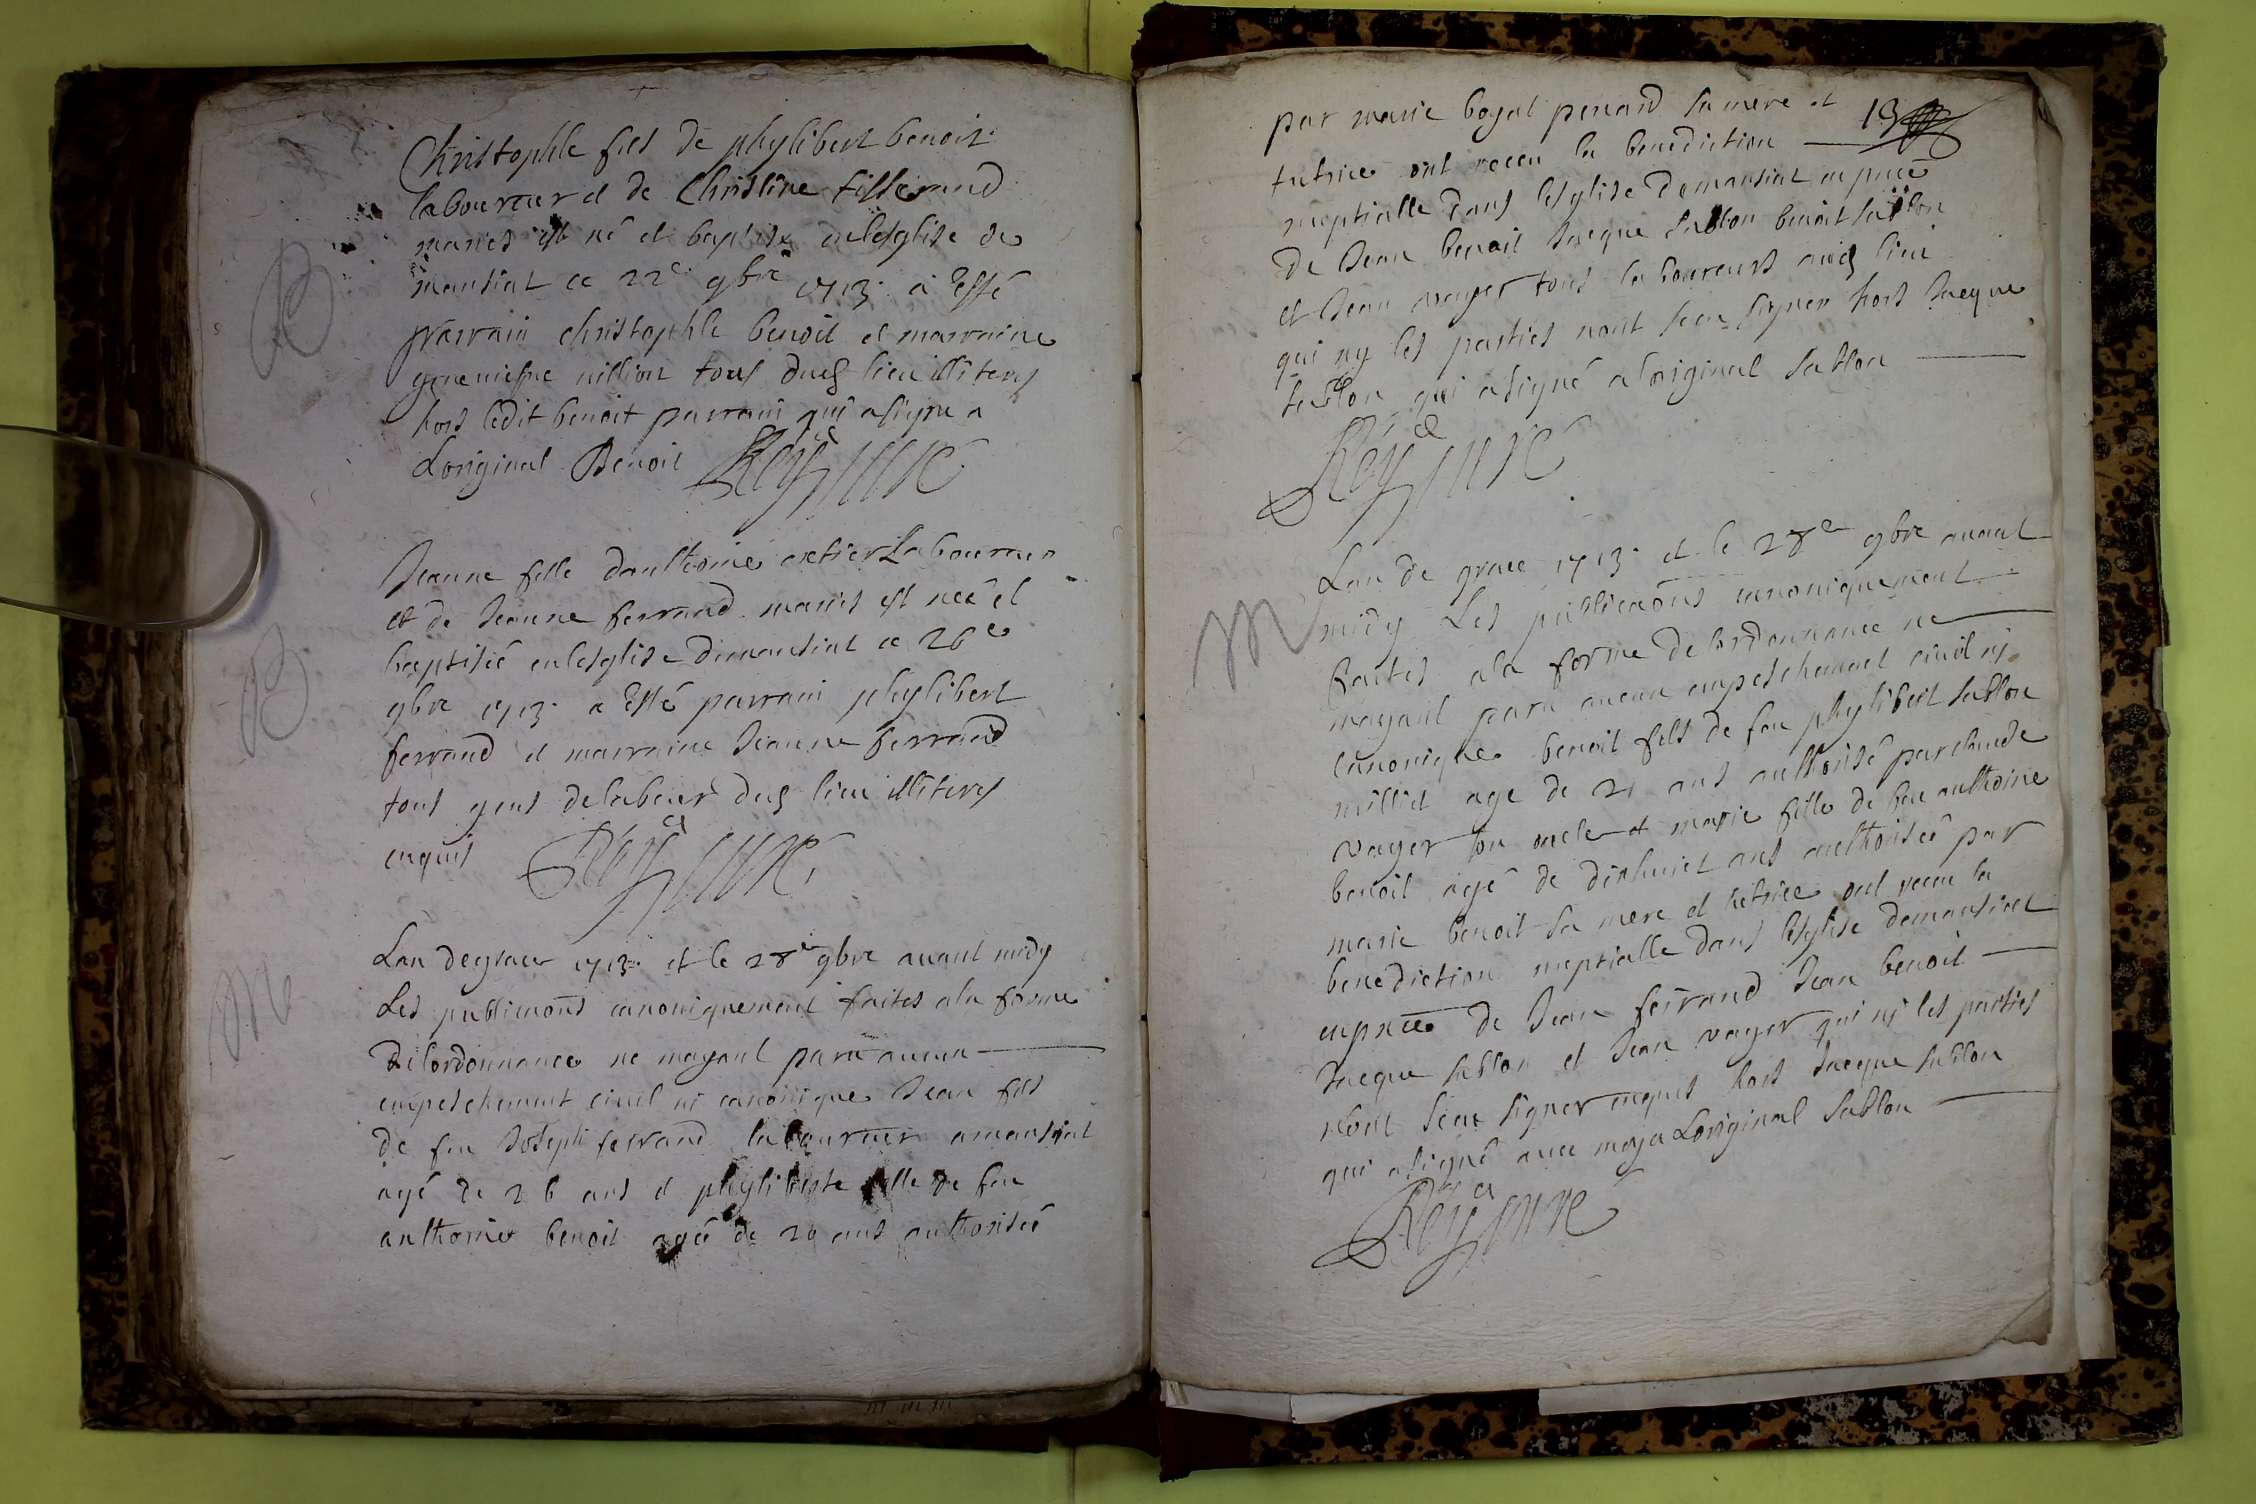 Christophle fils de phylibert benoit
laboureur et de Christine tisserand
mariés est né et baptisé en lesglise de
mansiat ce 22e 9bre 1713. a Esté
parrain christophle benoit et marraine
tous dud lieu illiterés
hors ledit benoit parrain qui a signe a
Loriginal Benoit Réy curé
B
Jeanne fille danthoine Laboureur
et de Jeanne ferrand mariés est neé et
baptiseé en lesglise de mansiat ce 26e
9bre 1713. a Esté parrain phylibert
ferrand et marraine Jeanne ferrand
tous gens de labeur dud lieu illiterés
enquis Réy curé
B
Lan de grace 1713. et le 28e 9bre avant midy
Les publicaõns canoniquement faites a la forme
de lordonnance ne mayant paru aucun
empeschement civil ni canonique Jean fils
de feu Joseph ferrand laboureur a mansiat
agé de 26 ans et phyliberte fille de feu
anthoine benoit agée de 20 ans authoriseé
M
13
par marie boyat penard sa mere et
tutrice ont receu la benediction
nuptialle dans lesglise de mansiat en pnce
de Jean benoit Jacque Sablon benoit Sablon
et Jean vayer tous laboureurs aud lieu
qui ny les parties nont sceu signer hors Jacque
Sablon qui a signé a loriginal Sablon
Réy curé
M
Lan de grace 1713. et le 28e 9bre avant
midy Les publicaõns canoniquement
faites a la forme de lordonnance ne
mayant paru aucun empeschement civil ny
canonique benoit fils de feu phylibert Sablon
millet age de 21 ans authorisé par claude
vayer son oncle et marie fille de feu anthoine
benoit agé de dixhuict ans authoriseé par
marie benoit sa mere et tutrice ont receu la
benediction nuptialle dans lesglise de mansiat
en pnce de Jean ferrand Jean benoit
Jacque Sablon et Jean vayer qui ny les parties
nont sceu signer enquis hors Jacque Sablon
qui a signé avec moy a Loriginal Sablon
Réy curé